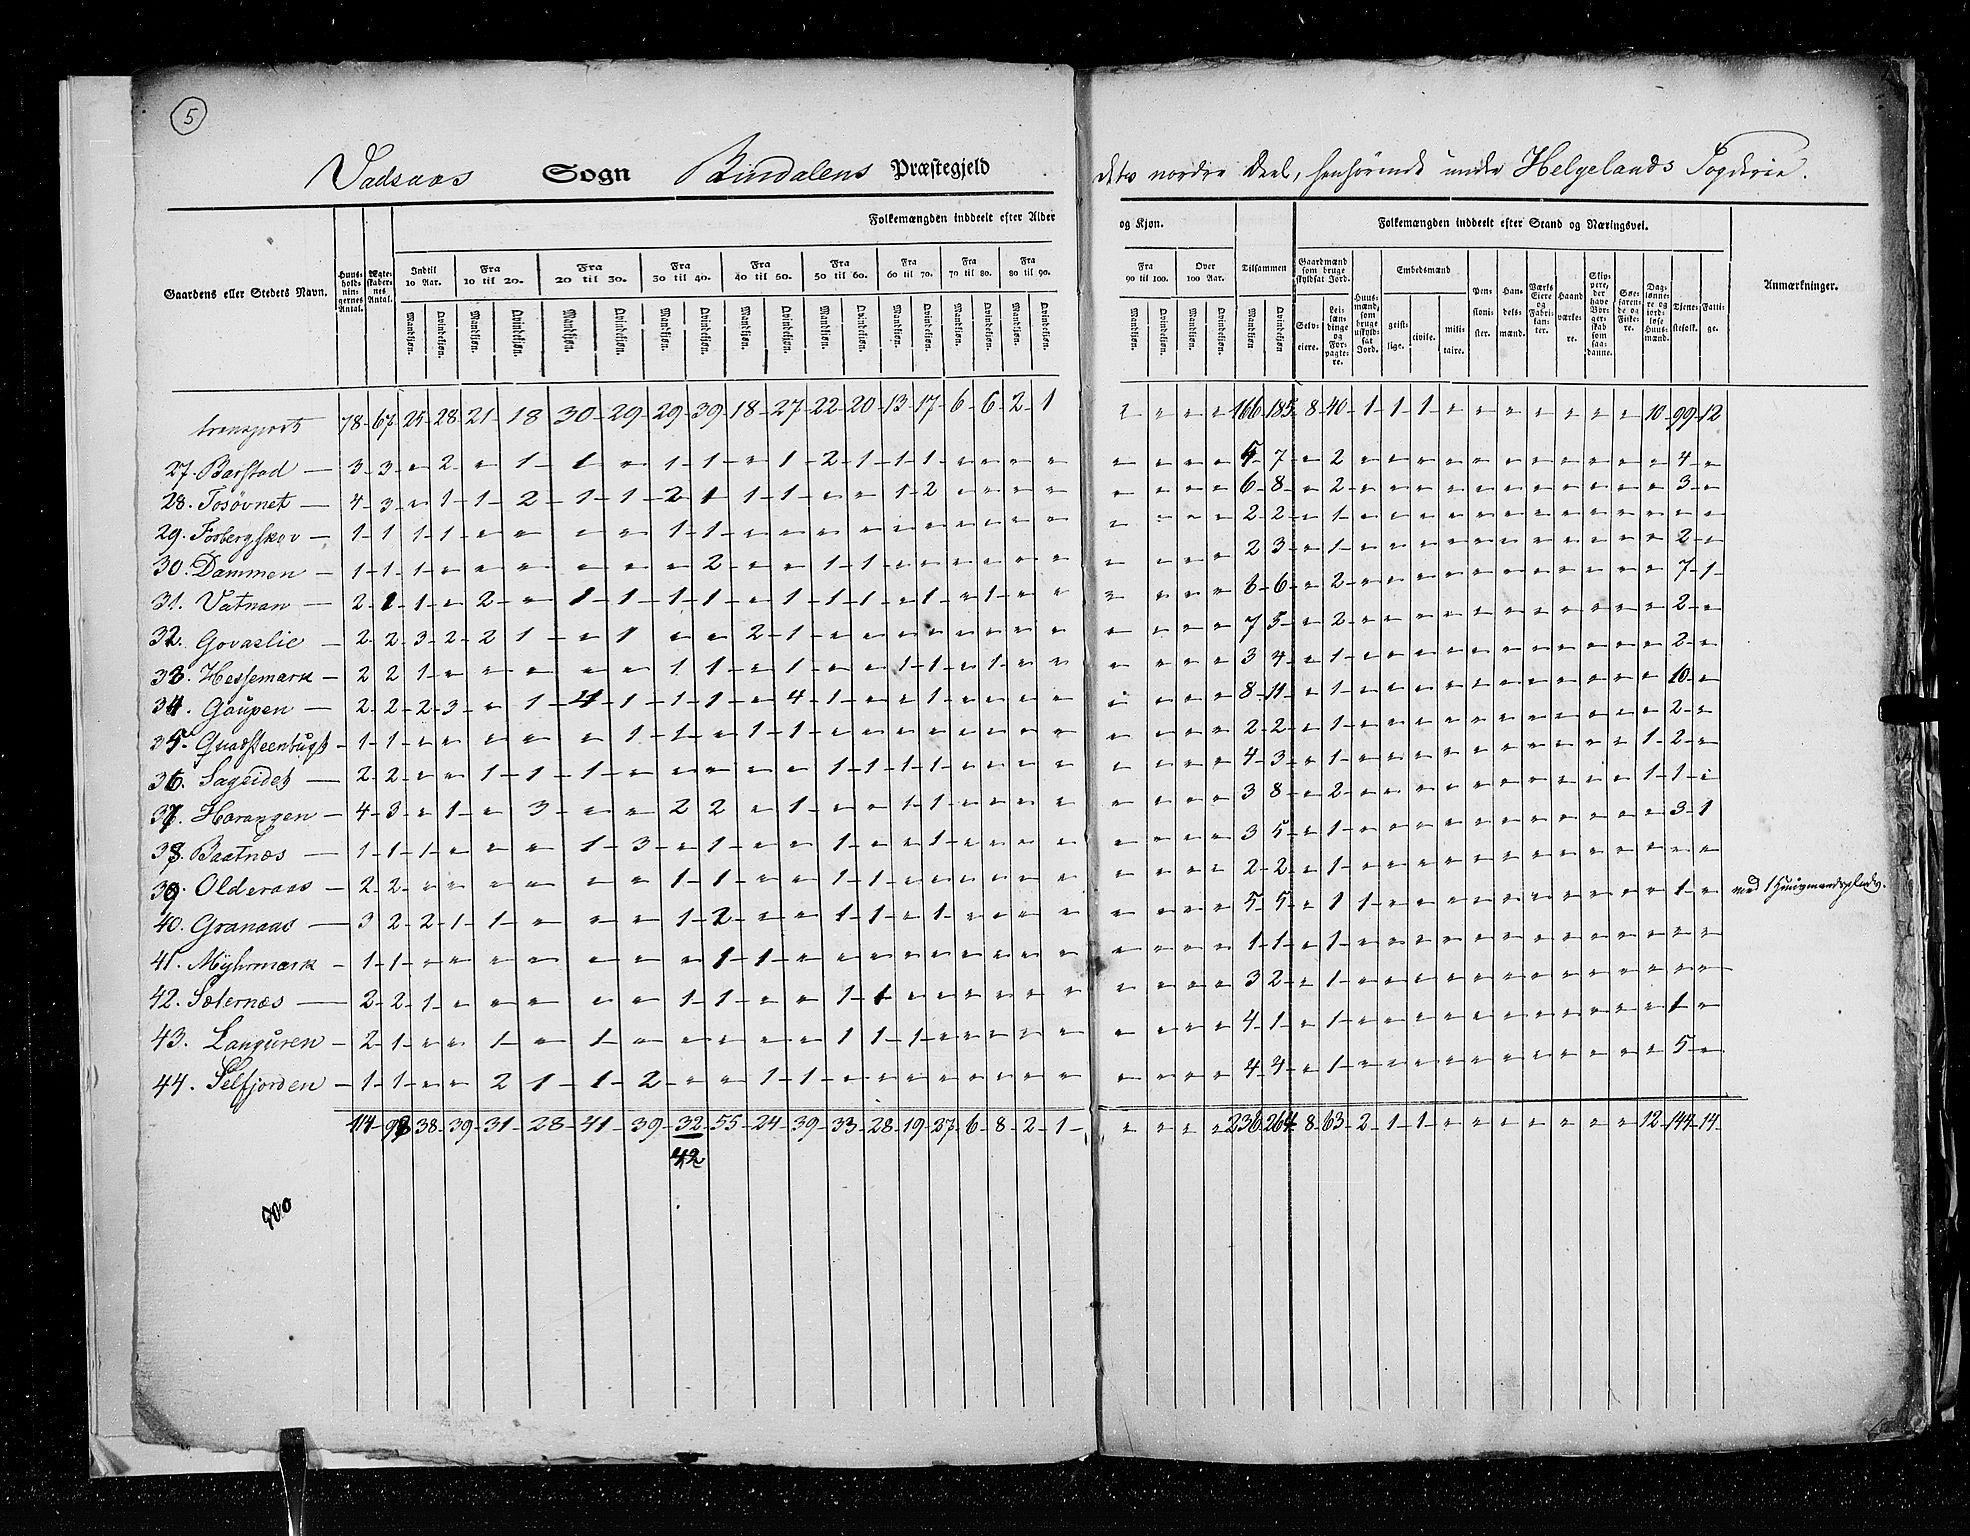 5
Vadsaas Sogn Bindalens Præstegjeld dets nordre Deel, henhörende under Helgelands Fogderie.
Folkemængden inddeelt efter Alder og Kjøn. Folkemængden inddeelt efter Stand og Næringsvei.
Gaardens eller Stedets Navn. Huusholdningernes Antal. Ægteskabernes Antal. Indtil 10 Aar. Fra 10 til 20. Fra 20 til 30. Fra 30 til 40. Fra 40 til 50. Fra 50 til 60. Fra 60 til 70. Fra 70 til 80. Fra 80 til 90. Fra 90 til 100. Over 100 Aar. Tilsammen Gaardmænd som bruge skyldsat Jord. Huusmænd, som bruge uskyldsat Jord. Embedsmænd Pensionister. Handelsmænd. Værks Eiere og Fabrikanter. Haandværkere. Skippere, der have Borgerskab som saadanne. Søefarende og Fiskere. Daglønnere og jordløse Huusmænd. Tjenestefolk. Fattige. Anmærkninger.
Mandkjøn. Qvindekjøn. Mandkjøn. Qvindekjøn. Mandkjøn. Qvindekjøn. Mandkjøn. Qvindekjøn. Mandkjøn. Qvindekjøn. Mandkjøn. Qvindekjøn. Mandkjøn. Qvindekjøn. Mandkjøn. Qvindekjøn. Mandkjøn. Qvindekjøn. Mandkjøn. Qvindekjøn. Mandkjøn. Qvindekjøn. Mandkjøn Qvindekjøn Selveiere. Leilændinge og Forpagtere. geistlige. civile. militaire.
transport 78 67 25 28 21 18 30 29 29 39 18 27 22 20 13 17 6 6 2 1 " " " " 166 185 8 40 1 1 1 " " " " " " " 10 99 12
27. Barstad 3 3 " 2 " 1 1 " 1 1 " 1 2 1 1 1 " " " " " " " " 5 7 " 2 " " " " " " " " " " " 4 "
28. Tosövnet 4 3 " 1 1 2 1 1 2 1 1 1 " " 1 2 " " " " " " " " 6 8 " 2 " " " " " " " " " " " 3 "
29. Fosbergskov 1 1 1 1 " " " " 1 1 " " " " " " " " " " " " " " 2 2 " 1 " " " " " " " " " " " " "
30. Dammen 1 1 1 " " " " " " 2 " " 1 1 " " " " " " " " " " 2 3 " 1 " " " " " " " " " " " 2 "
31. Vatnan 2 1 1 " 2 " 1 1 1 1 " 1 1 1 " 1 " 1 " " " " " " 6 6 " 2 " " " " " " " " " " " 7 1
32. Govaslie 2 2 3 2 2 1 " 1 " " 2 1 " " " " " " " " " " " " 7 5 " 2 " " " " " " " " " " " 2 "
33. Hessemark 2 2 1 " " " " " 1 1 " 1 " " 1 1 " 1 " " " " " " 3 4 " 1 " " " " " " " " " " " 2 "
34. Gaupen 2 2 2 3 " 1 4 1 1 1 " 4 1 " " 1 " " " " " " " " 8 11 " 1 " " " " " " " " " " " 10 "
35. Quadsteenbugt 1 1 " " " " " 1 1 " 1 1 " " " " " " " " " " " " 2 2 " 1 " " " " " " " " " " " 2 "
36. Sageidet 2 2 " " 1 1 1 " " " " " 1 1 1 1 " " " " " " " " 4 3 " 1 " " " " " " " " " " 1 2 "
37. Horangen 4 3 " 1 " 3 " " 2 2 " 1 " " 1 1 " " " " " " " " 3 8 " 2 " " " " " " " " " " 1 1 "
38. Baatnæs 1 1 1 " " " 1 3 " 1 " " 1 " " 1 " " " " " " " " 3 5 " 1 " " " " " " " " " " " 3 1
39. Olderaas 2 2 " " " " " " 1 1 " " 1 1 " " " " " " " " " " 2 2 " 1 " " " " " " " " " " " " "
40. Granaas 3 2 2 1 1 " " " 1 2 " " 1 1 " 1 " " " " " " " " 5 5 " 1 1 " " " " " " " " " " 1 "
41. Myhrmark 1 1 " " " " " " " 1 1 " " " " " " " " " " " " " 1 1 " 1 " " " " " " " " " " " " "
42. Sæternæs 2 2 1 " " " " " 1 1 " " 1 1 " " " " " " " " " " 3 2 " 1 " " " " " " " " " " " " "
43. Languren 2 1 " " 1 " 1 " " " " " 1 1 1 " " " " " " " " " 4 1 " 1 " " " " " " " " " " " 1 "
44. Selfjorden 1 1 " " 2 1 1 2 " " 1 1 " " " " " " " " " " " " 4 4 " 1 " " " " " " " " " " " 5 "
114 98 38 39 31 28 41 39 32 55 24 39 33 28 19 27 6 8 2 1 " " " " 236 264 8 63 2 1 1 " " " " " " " 12 144 14
42